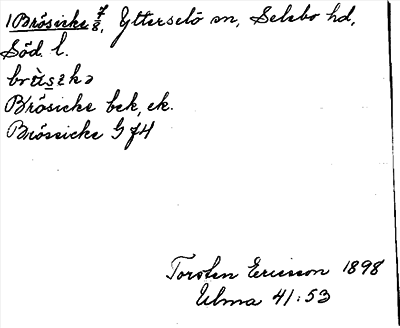 1 Brösicke 7/8, Ytterselö sn, Selebo hd,
Söd. l.
brὺszkə
Brösicke bek, ek.
Brössicke G J4
Torsten Ericsson 1898
Ulma 41:53